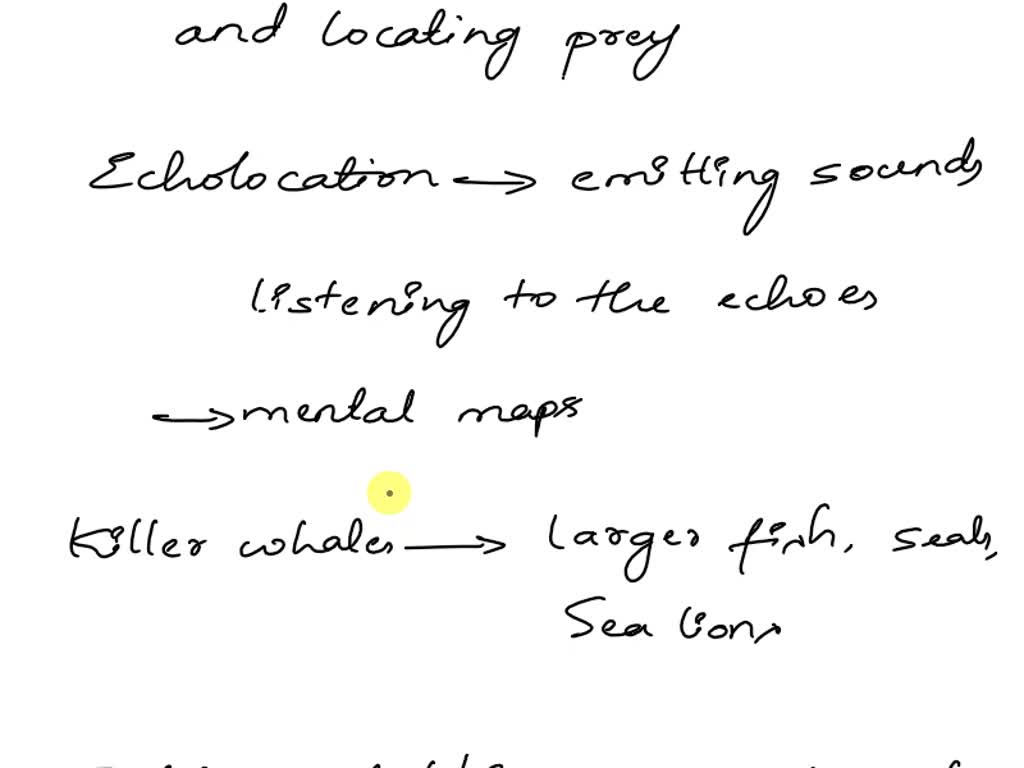 and locating prey
Echolocation → emitting sounds
listening to the echoes
→ mental maps
Killer whales → larger fish, seals,
Sea lions